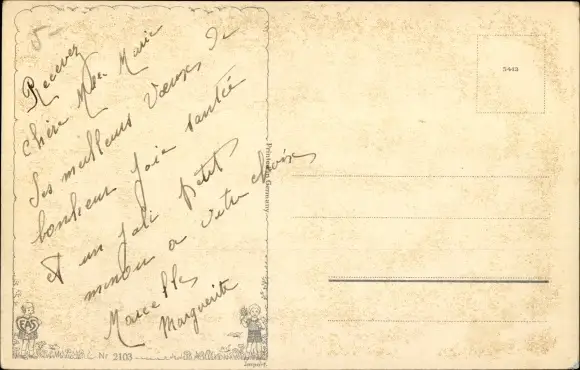 5-
Recevez
chère Mlle Marie
Les meilleurs Voeux de
bonheur joie santée
et un joli petit
minou a votre choix
Marcelle
Marguerite
EAS
Nr 2103
Printed in Germany
Import.
5443